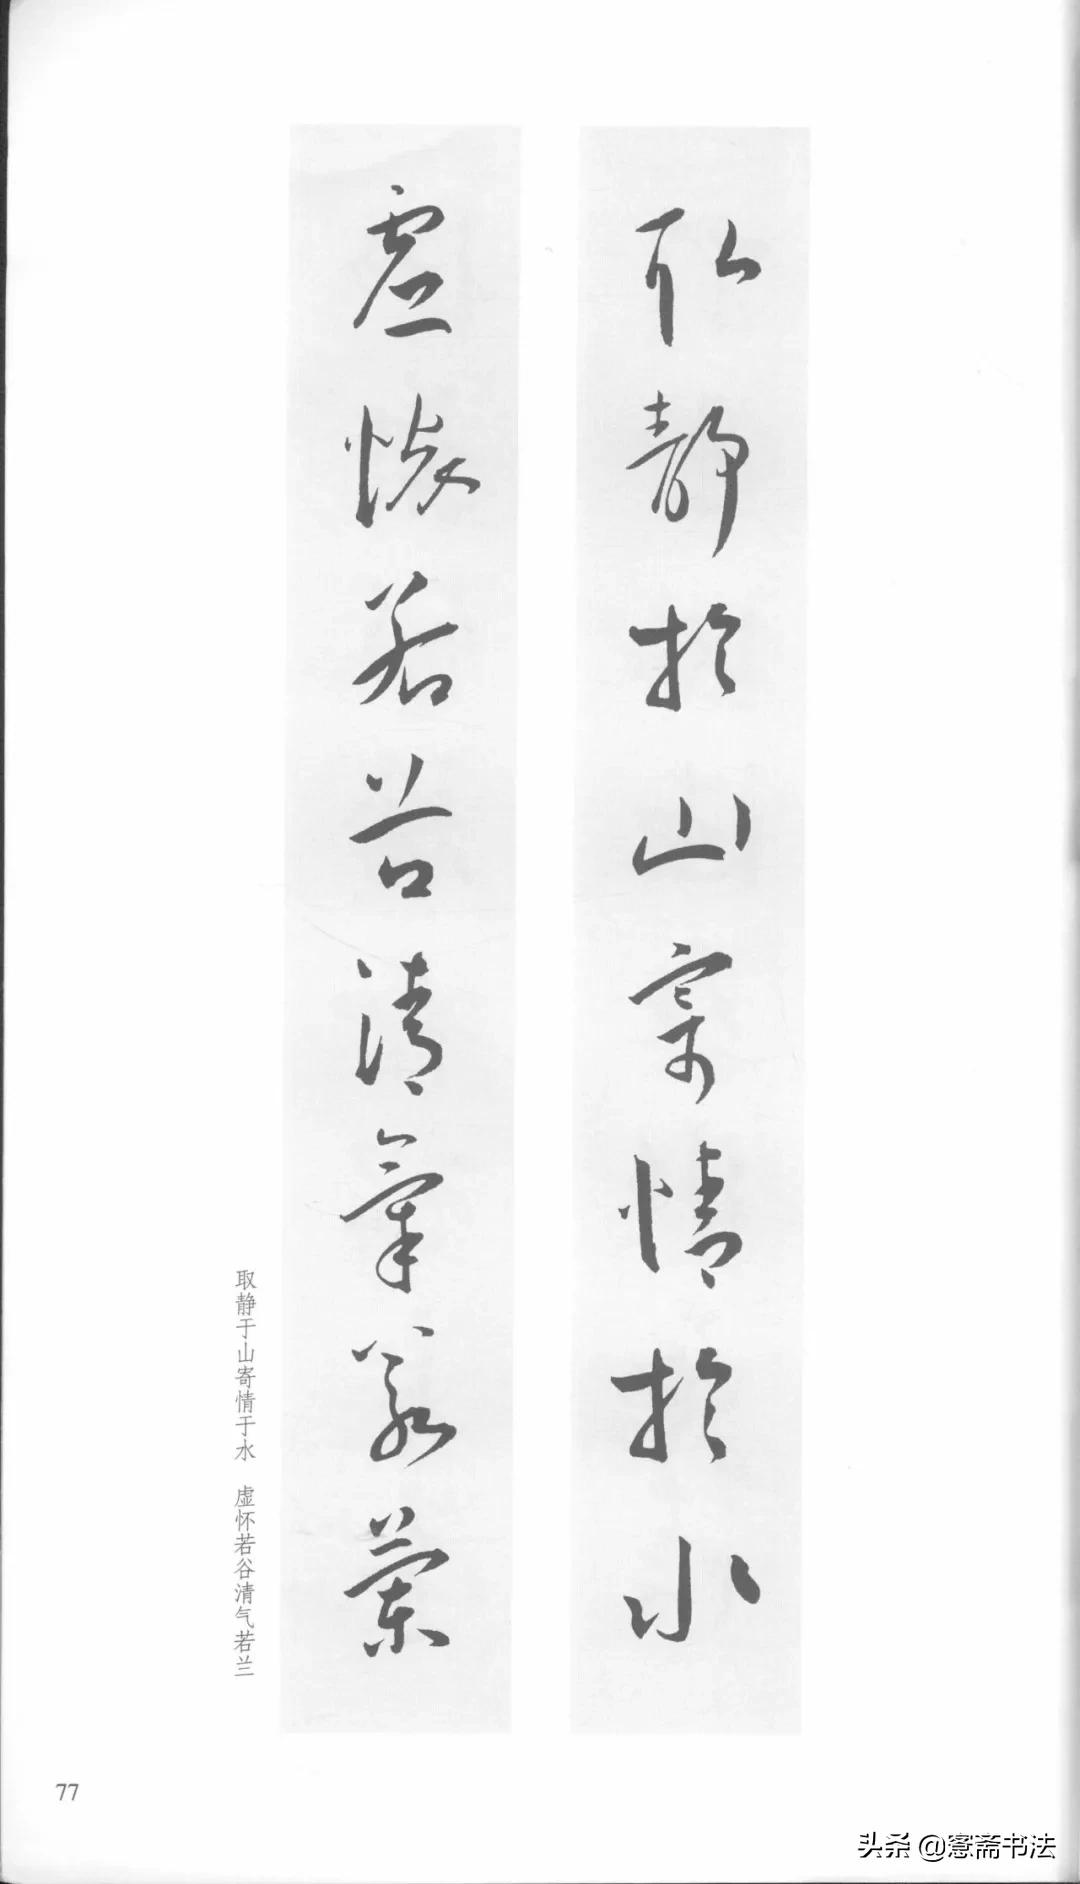 取静於山寄情於水
虚怀若谷清氣若蘭
取静于山寄情于水 虚怀若谷清气若兰
77
头条 @窓斋书法